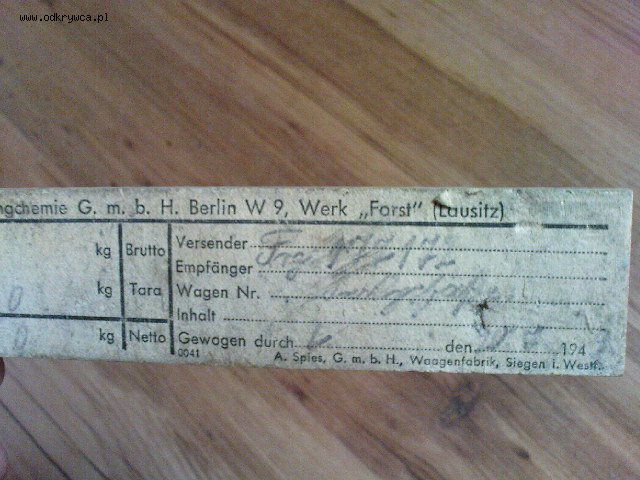 www.odkrywca.pl
ngchemie G. m. b. H. Berlin W 9, Werk „Forst" (Lausitz)
kg Brutto Versender
Empfänger
0 kg Tara Wagen Nr.
Inhalt
0 kg Netto Gewogen durch den 194
0041 A. Spies, G. m. b. H., Waagenfabrik, Siegen i. Westf.